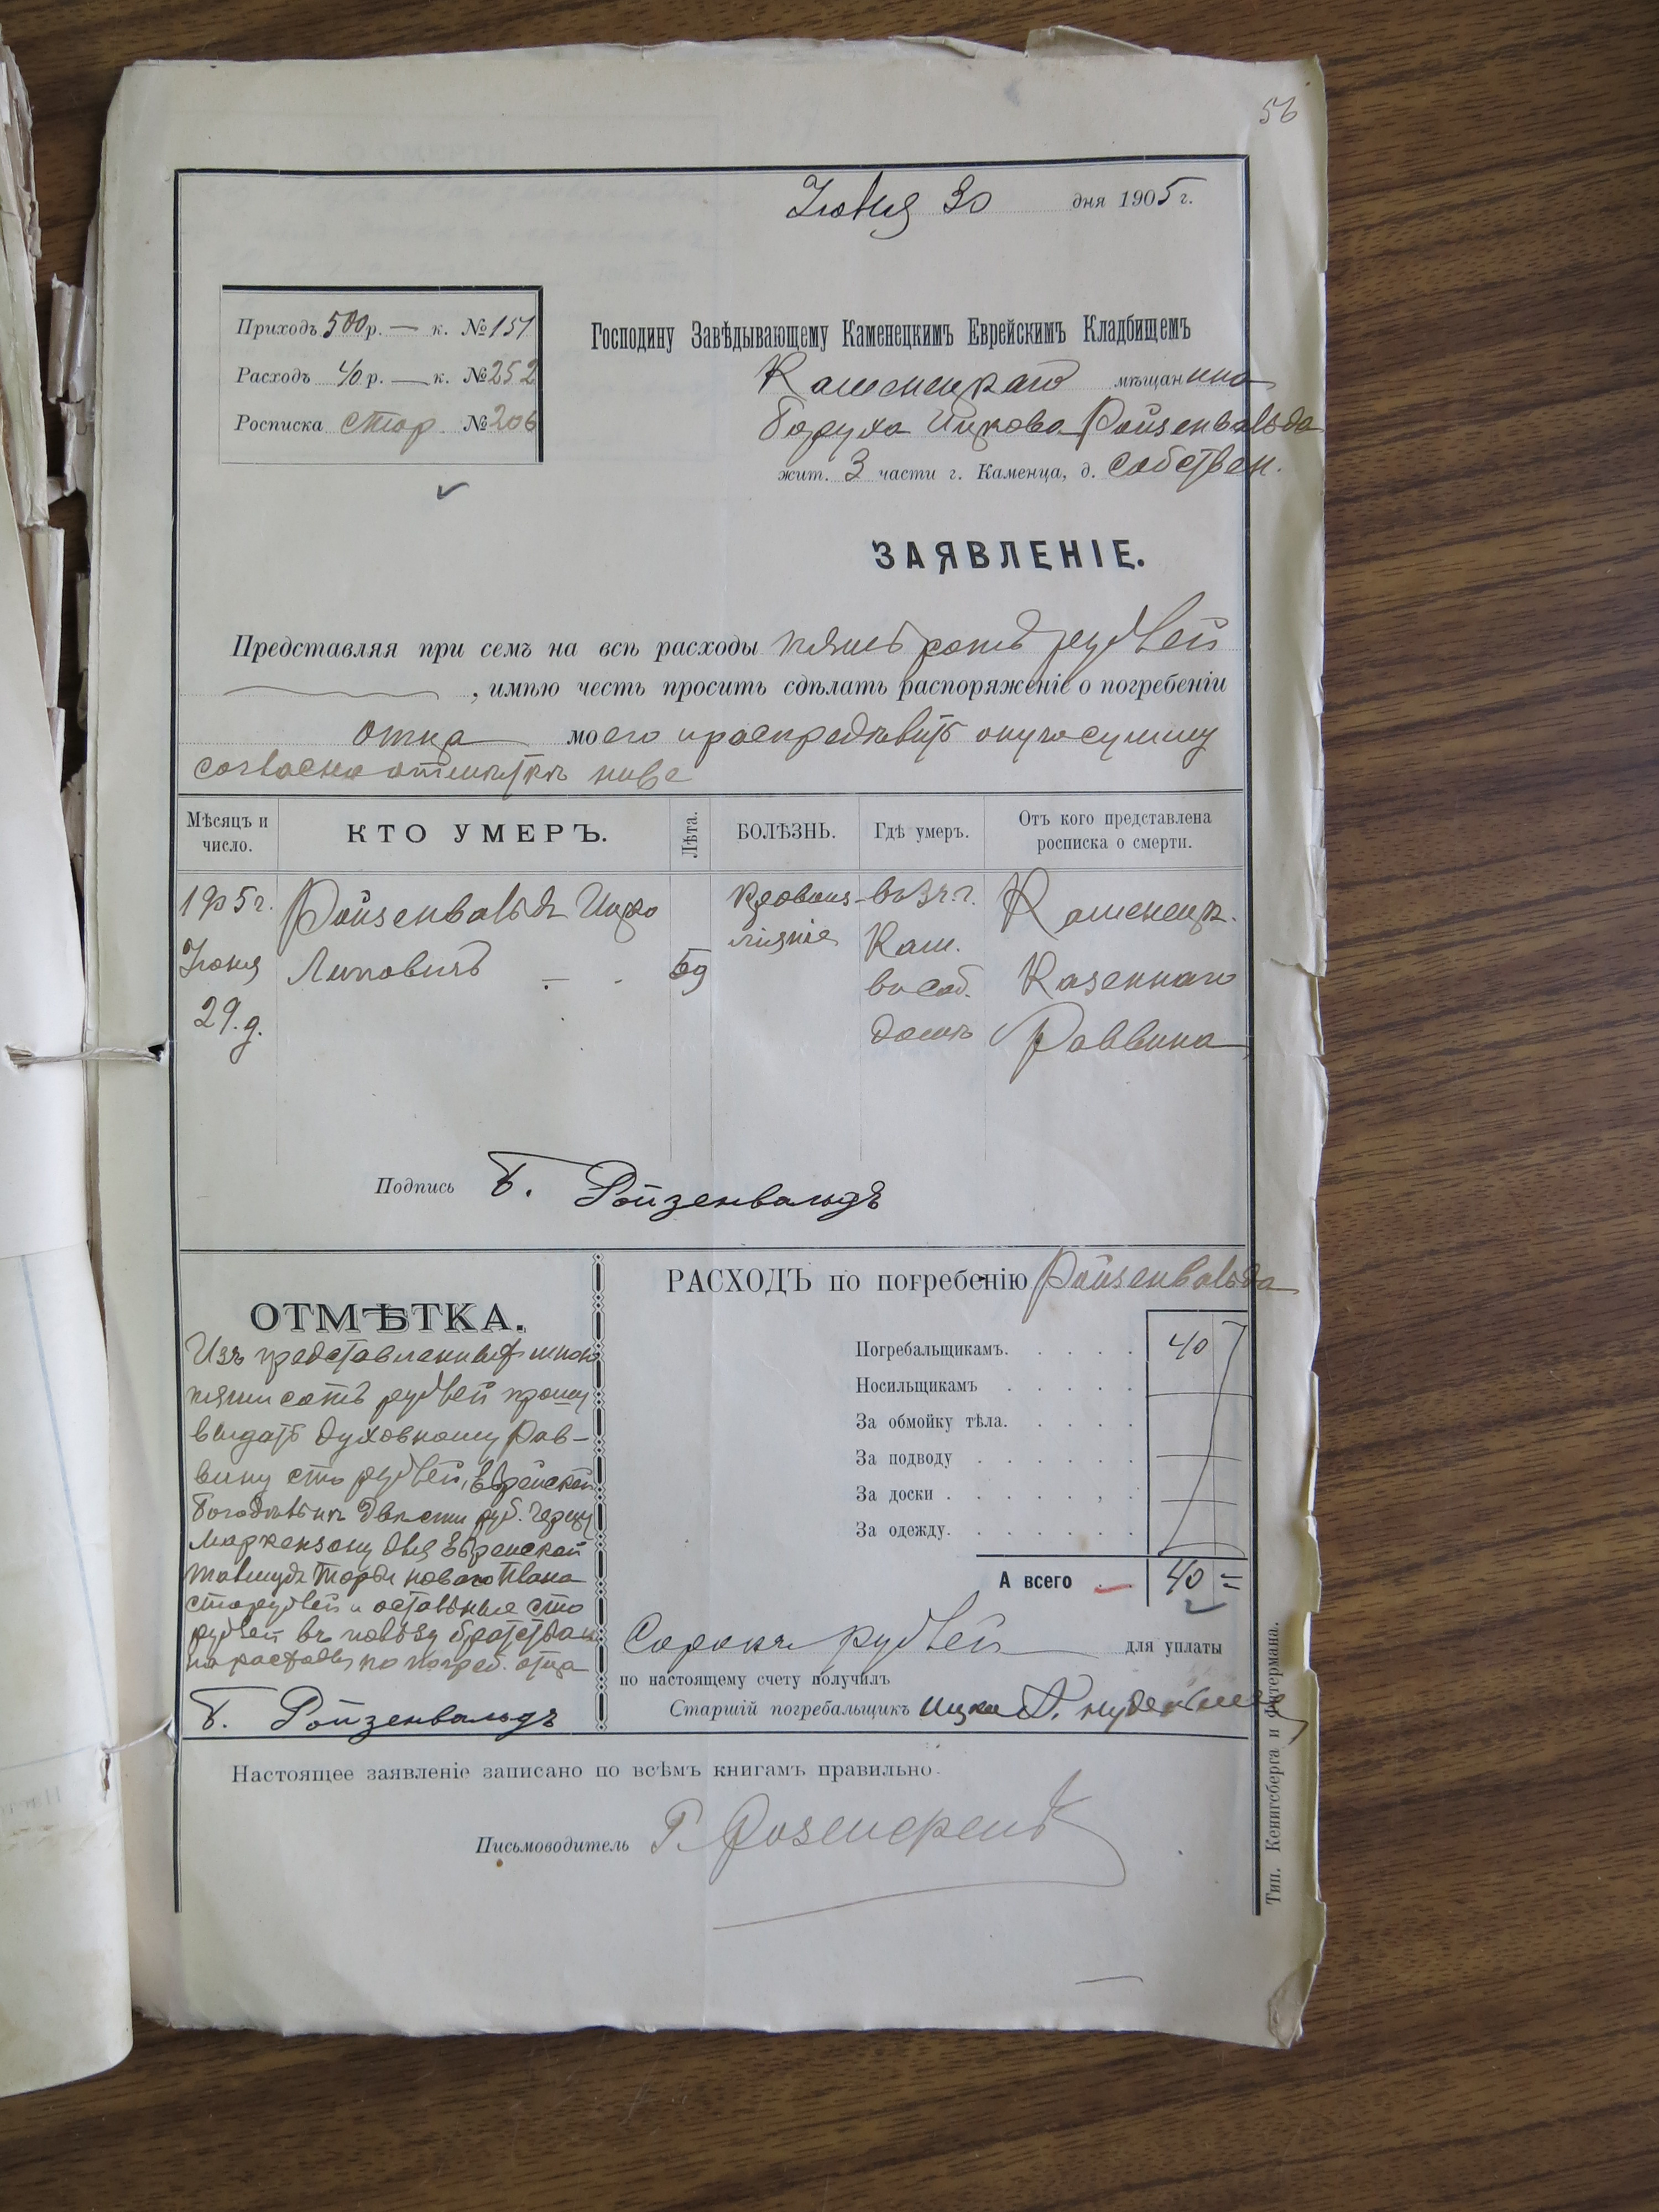 56
Июня 30 дня 1905 г.
Приходъ 500 р. — к. № 151
Расходъ 40 р. — к. № 252
Росписка стор. № 206
Господину Завѣдывающему Каменецкимъ Еврейскимъ Кладбищемъ
Каменецкаго мѣщанина
Боруха Ицкова Ройзенвальда
жит. 3 части г. Каменца, д. собствен.
ЗАЯВЛЕНІЕ.
Представляя при семъ на всѣ расходы пятьсотъ рублей
, имѣю честь просить сдѣлать распоряженіе о погребеніи
отца моего и распредѣлить оную сумму
согласно отмѣткѣ ниже
Мѣсяцъ и число. КТО УМЕРЪ. Лѣта. БОЛѢЗНЬ. Гдѣ умеръ. Отъ кого представлена росписка о смерти.
1905 г. Ройзенвальдъ Ицко кровоиз- въ 3 ч. г. Каменецк.
Июня Липовичъ 69 ліяніе Кам. Казеннаго
29 д. въ соб. домѣ Раввина
Подпись Б. Ройзенвальдъ
ОТМѢТКА.
Изъ представленныхъ мною
пяти сотъ рублей прошу
выдать духовному Рав-
вину сто рублей, Еврейской
богодѣльнѣ двѣсти руб. черезъ
для Еврейской
Талмудъ Торы новаго плана
сто рублей и остальные сто
рублей въ пользу братства
на расходы по погреб. отца
Б. Ройзенвальдъ
РАСХОДЪ по погребенію Ройзенвальда
Погребальщикамъ. 40
Носильщикамъ
За обмойку тѣла.
За подводу
За доски
За одежду.
А всего 40 =
Сорокъ рублей для уплаты
по настоящему счету получилъ
Старшій погребальщикъ Ицко
Настоящее заявленіе записано по всѣмъ книгамъ правильно.
Письмоводитель Г.
Тип. Кенигсберга и Фитермана.